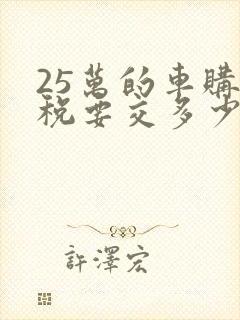 25萬的車購
稅要交多少
許澤宏